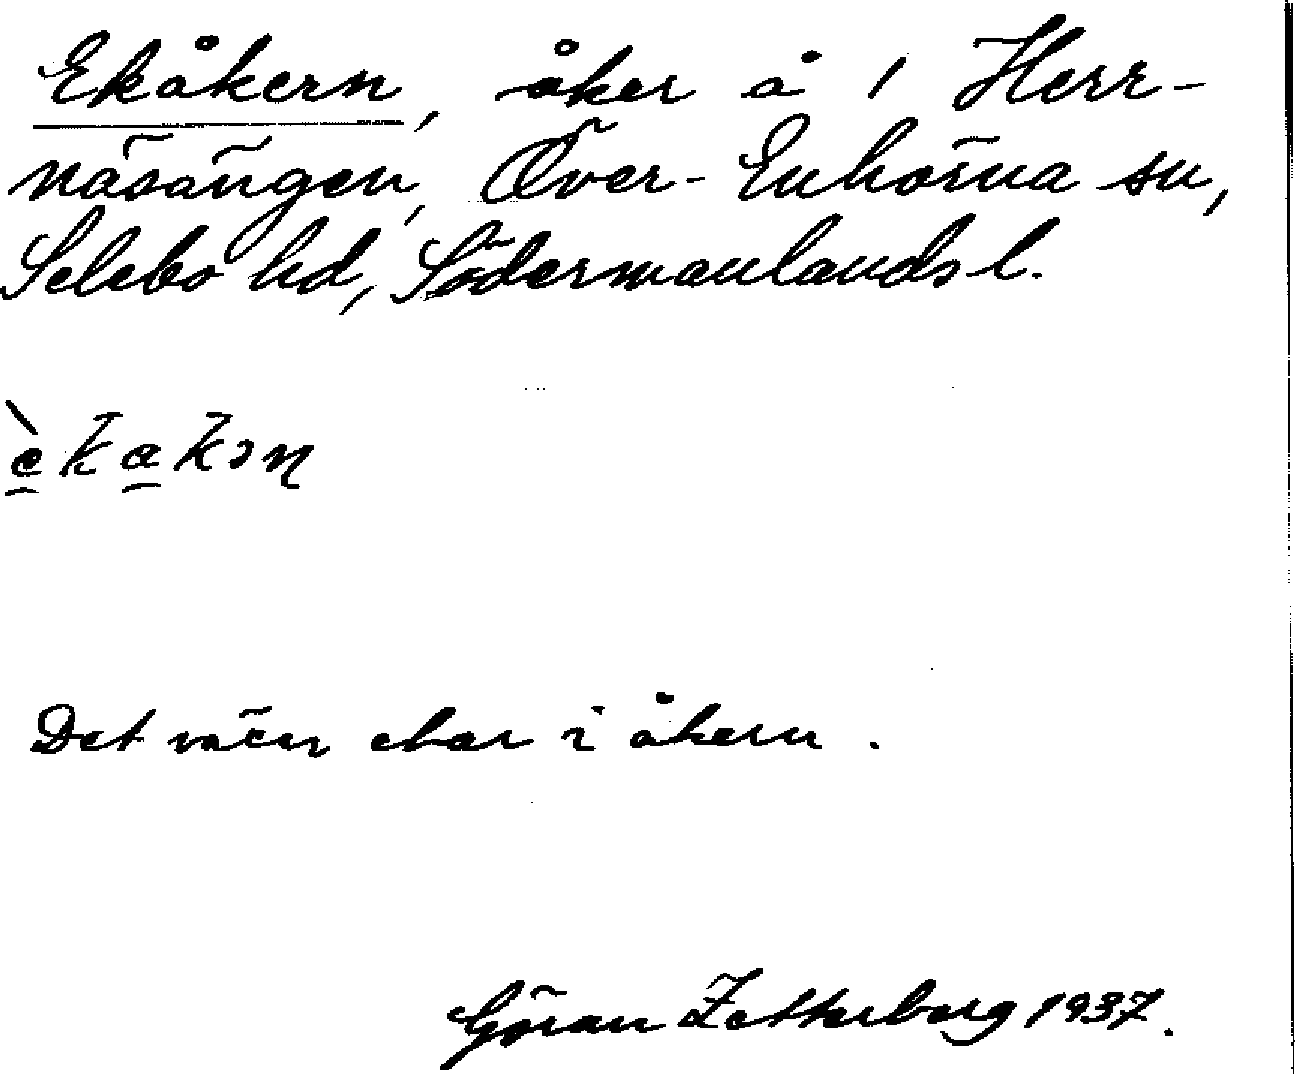 Ekåkern, åker å 1 Herr-
näsängen, Över-Enhörna sn,
Selebo hd, Södermanlands l.
Det växer ekar i åkern.
Göran Zetterberg 1937.